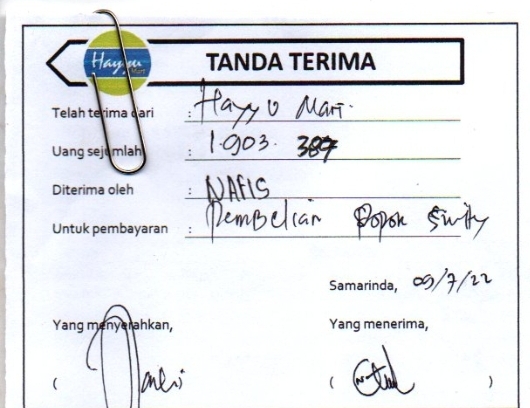 Hayyu
Mart
TANDA TERIMA
Telah terima dari : Hayyu Mart.
Uang sejumlah : 1.903. 389
Diterima oleh : NAFIS
Untuk pembayaran : Pembelian Popok
Samarinda, 09/7/22
Yang menyerahkan, Yang menerima,
( ( )